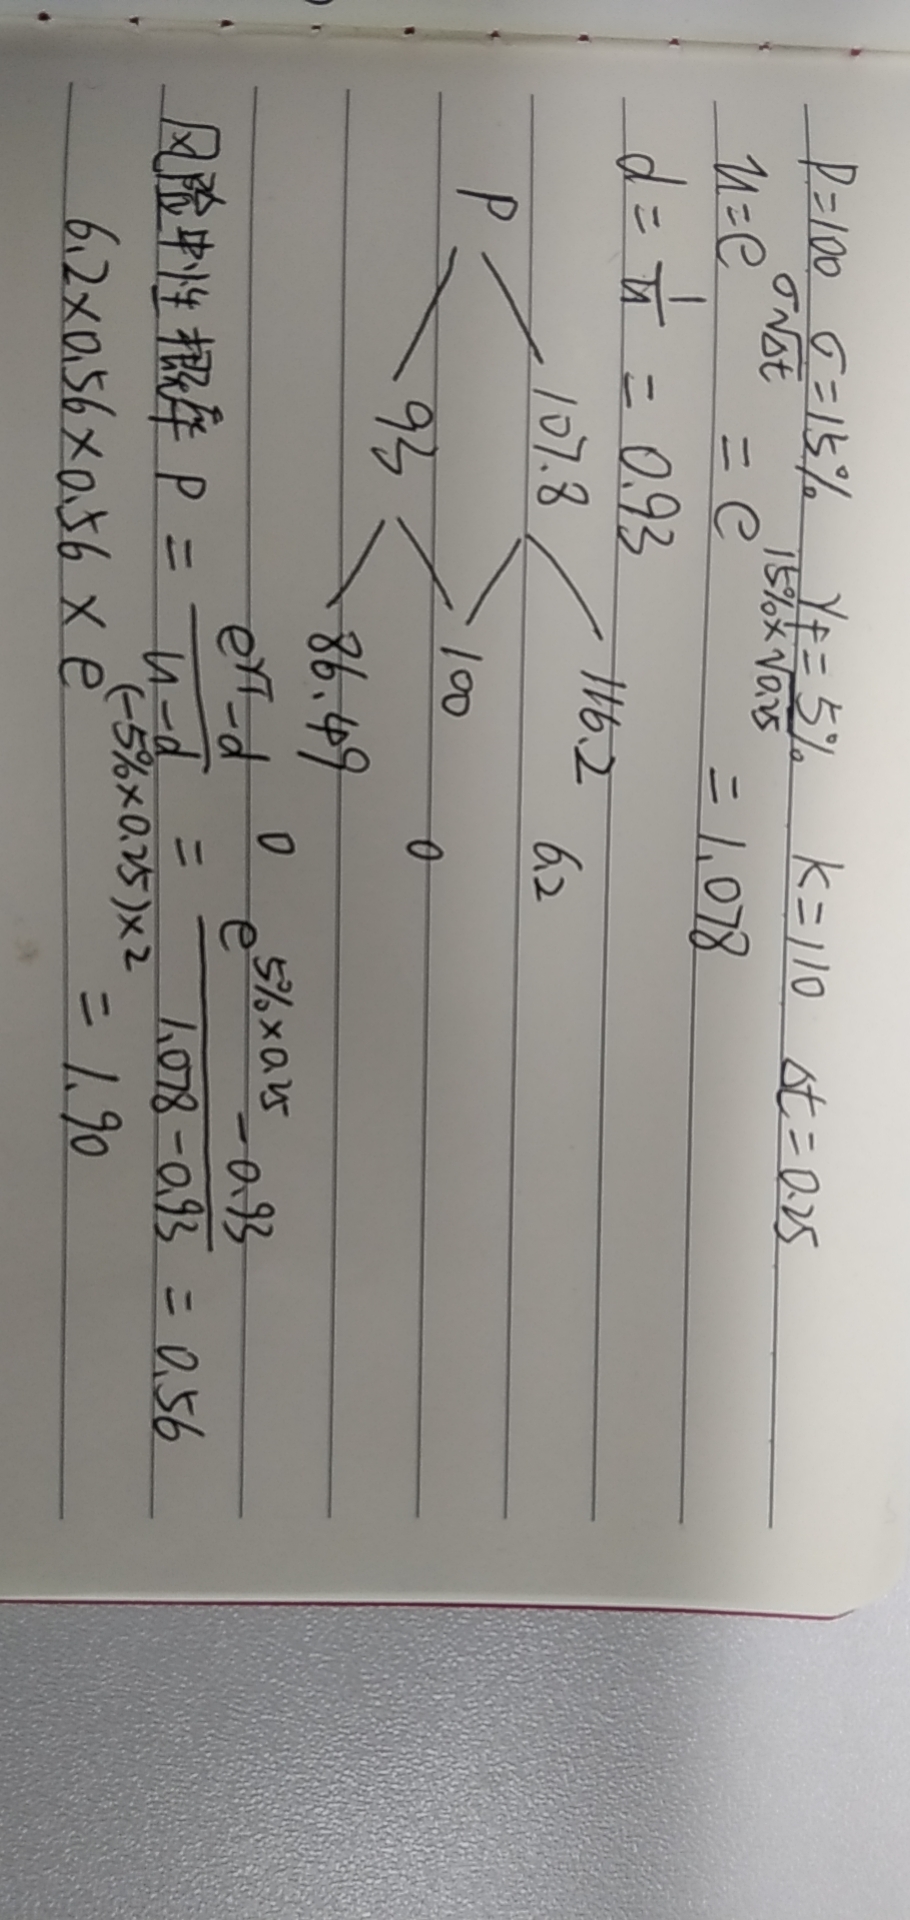 P=100 σ=15% γf=5% K=110 Δt=0.25
u=e^σ√Δt = e^15%×√0.25 = 1.078
d=1/u = 0.93
116.2 6.2
107.8
P 100 0
93
86.49 0
风险中性概率 P = (e^rT-d)/(u-d) = (e^5%×0.25 -0.93)/(1.078-0.93) = 0.56
6.2×0.56×0.56×e^(-5%×0.25)×2 = 1.90